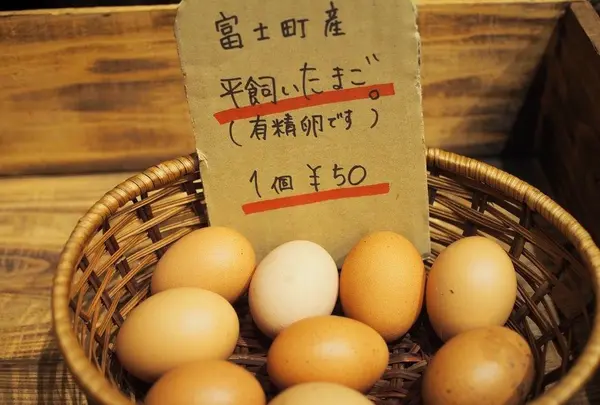 富士町産
平飼いたまご。
(有精卵です)
1個 ¥50